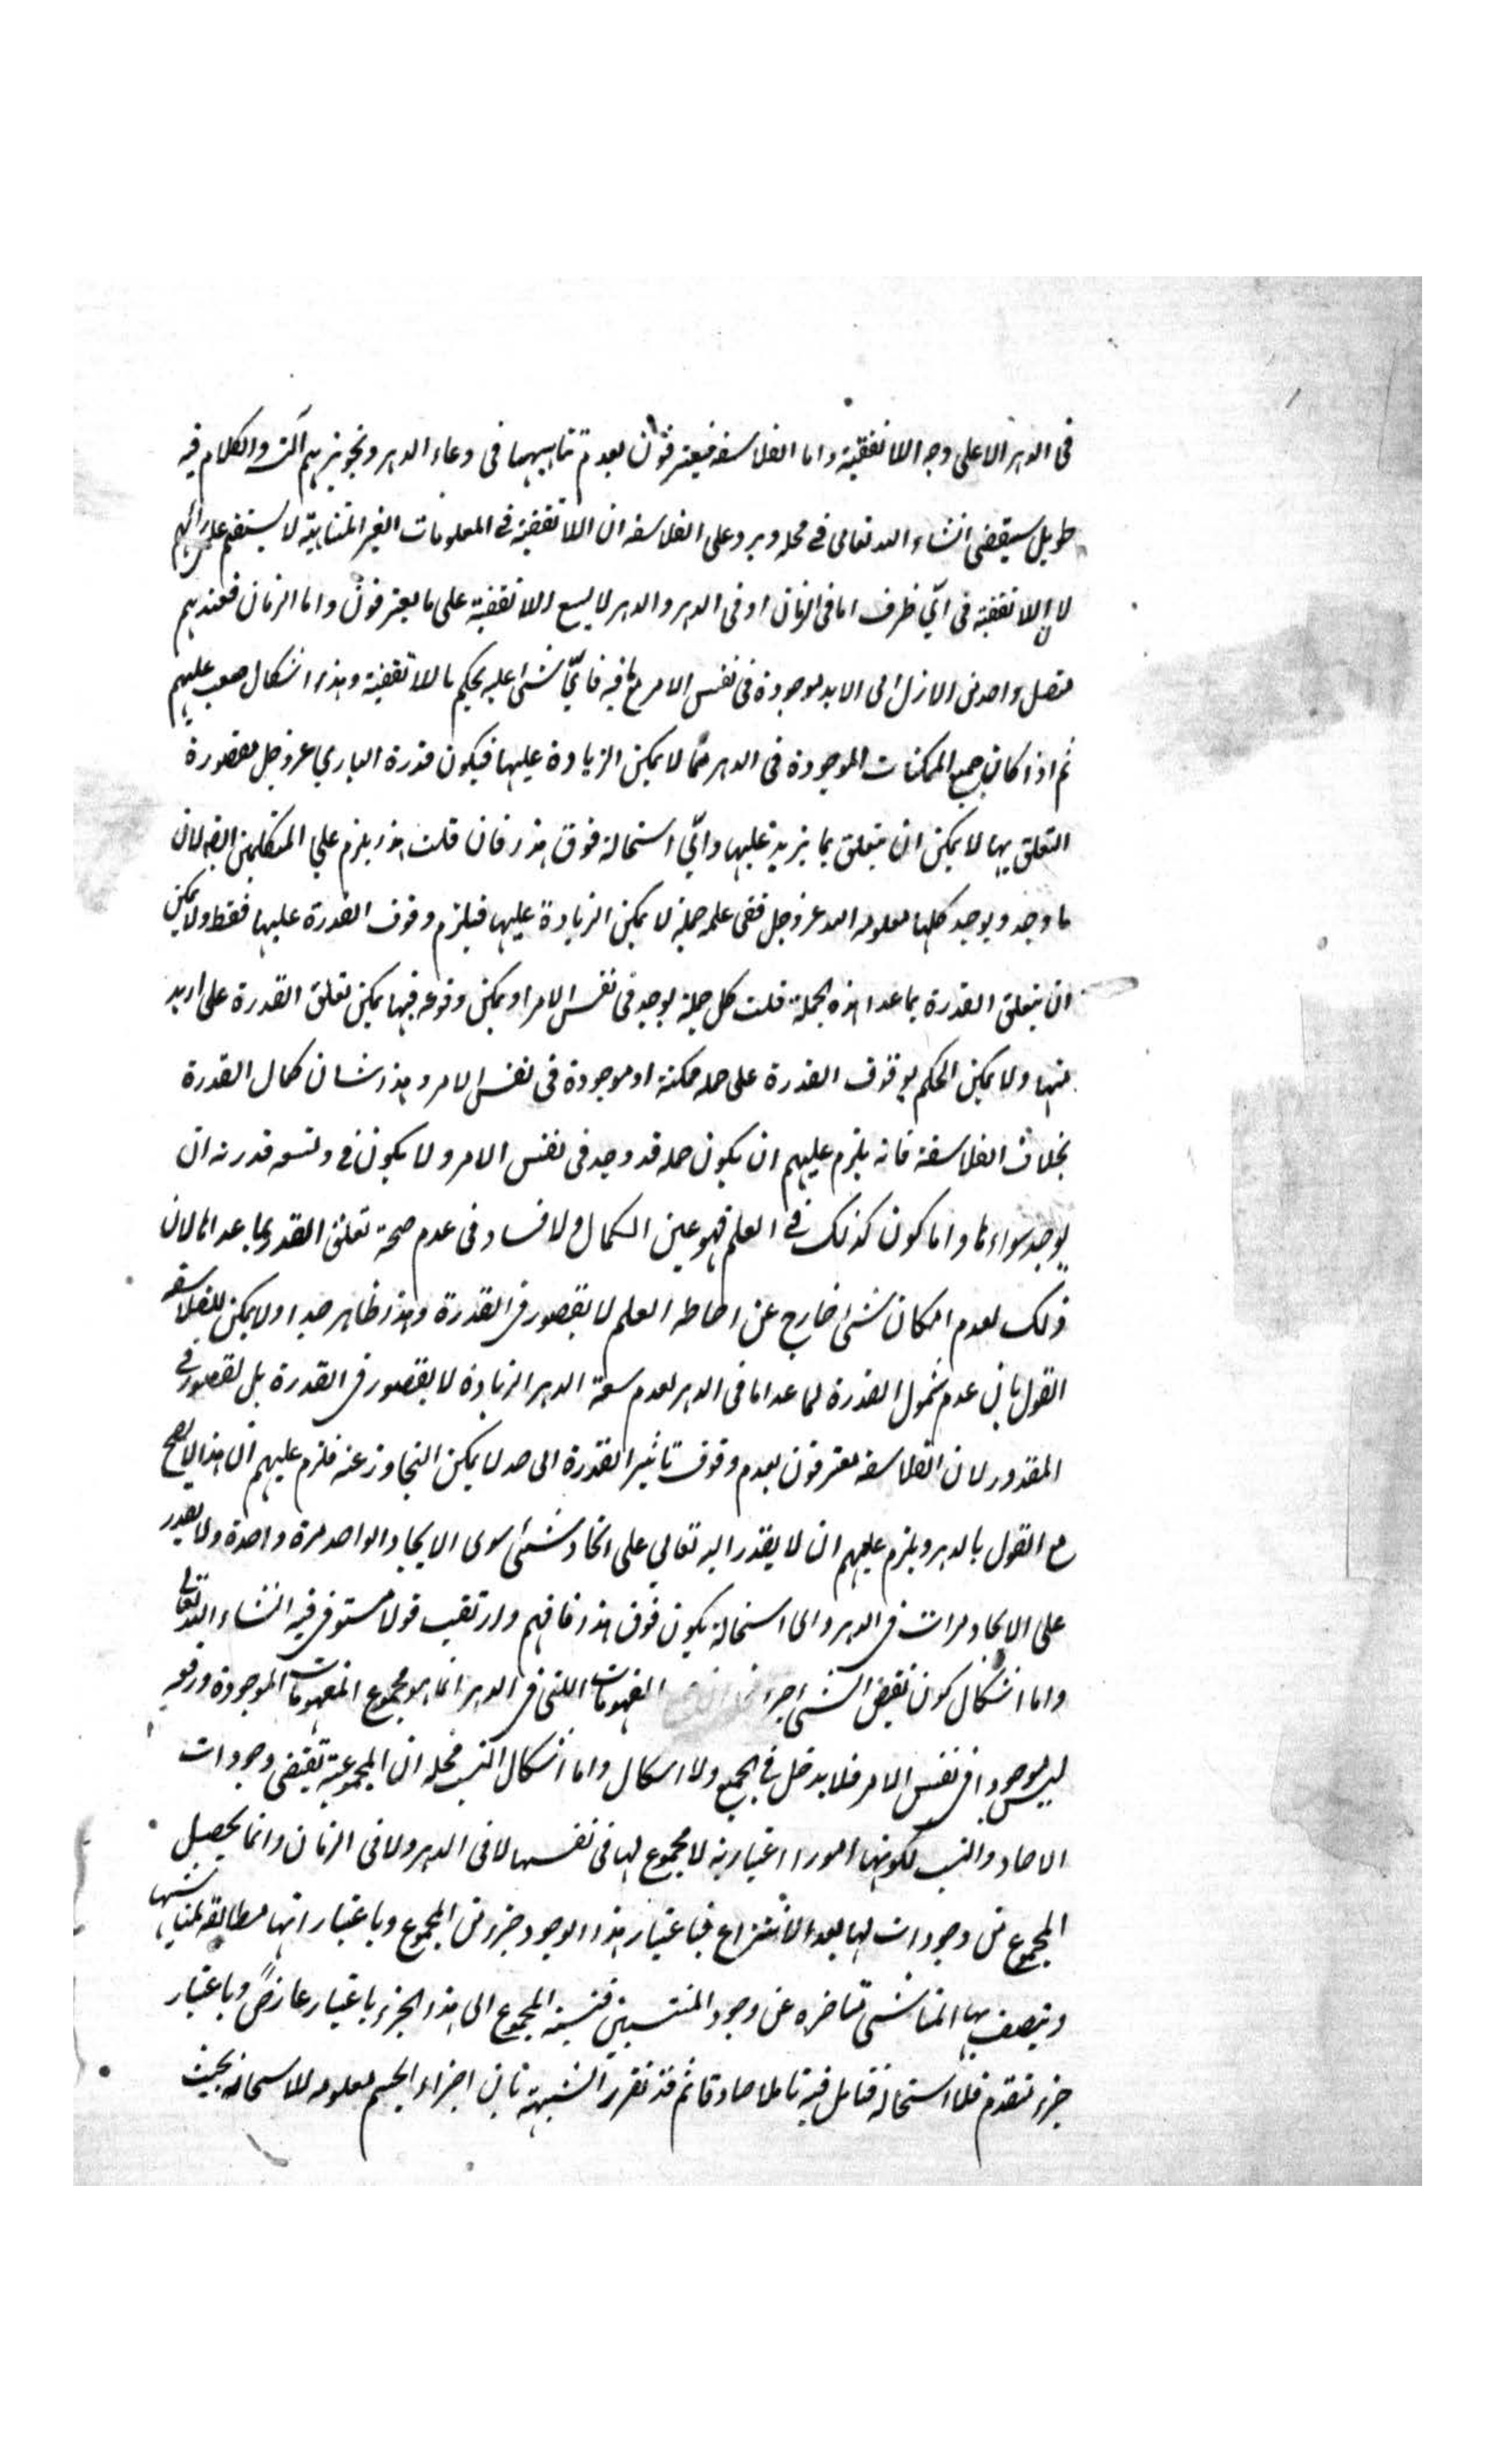 فى الدهر الا على وجه اللا تقفية واما الفلاسفة فيعترفون بعدم تناهيها فى وعاء الدهر وتجويزهم والكلام فيه
طويل سيقضى انشاء الله تعالى فى محله ويرد على الفلاسفة ان اللا تقفية فى المعلومات الغير المتناهية لا يستقيم على رائهم
لان اللا تقفية فى اىّ ظرف اما فى الزمان او فى الدهر والدهر لا يسع اللا تقفية على ما يعترفون واما الزمان فعندهم
متصل واحد من الازل الى الابد موجودة فى نفس الامر مع ما فيه فاىّ شئ عليه يحكم باللا تقفية وهذا اشكال صعب عليهم
ثم اذا كان جميع الممكنات الموجودة فى الدهر مما لا يمكن الزيادة عليها فيكون قدرة البارى عز وجل مقصورة
التعلق بها لا يمكن ان يتعلق بما يزيد عليها واىّ استحالة فوق هذا فان قلت هذا يلزم على المتكلمين ايضا لان
ما وجد ويوجد كلها معلومه الله عز وجل ففى علمه جملة لا يمكن الزيادة عليها فيلزم وقوف القدرة عليها فقط ولا يمكن
ان يتعلق القدرة بما عدا هذه الجملة قلت كل جملة يوجد فى نفس الامر او يمكن وقوعه فيها يمكن تعلق القدرة على ازيد
منها ولا يمكن الحكم بوقوف القدرة على جملة ممكنة او موجودة فى نفس الامر وهذا شان كمال القدرة
بخلاف الفلاسفة فانه يلزم عليهم ان يكون جملة قد وجد فى نفس الامر ولا يكون فى وسعة قدرته ان
يوجد سواءها واما كون كذلك فى العلم فهو عين الكمال ولا فساد فى عدم صحة تعلق القدرة بما عداها لان
ذلك لعدم امكان شئ خارج عن احاطة العلم لا بقصور فى القدرة وهذا ظاهر جدا ولا يمكن للفلاسفة
القول بان عدم شمول القدرة لما عدا ما فى الدهر لعدم سعة الدهر الزيادة لا بقصور فى القدرة بل لقصور فى
المقدور لان الفلاسفة معترفون بعدم وقوف تاثير القدرة الى حد لا يمكن التجاوز عنه فلزم عليهم ان هذا لا يصح
مع القول بالدهر ويلزم عليهم ان لا يقدر الله تعالى على ايجاد شئ سوى الايجاد الواحد مرة واحدة ولا يقدر
على الايجاد مرات فى الدهر واى استحالة يكون فوق هذا فافهم وارتقب قولا مستوفى فيه انشاء الله تعالى
واما اشكال كون نقيض الشئ جزء المفهومات اللتى فى الدهر انما هو مجموع المفهومات الموجودة ورفعه
ليس موجودا فى نفس الامر فلا يدخل فى الجميع ولا اشكال واما اشكال النسب فحله ان المجموعية تقتضى وجودات
الاحاد والنسب لكونها امورا اعتبارية لا مجموع لها فى نفسها لا فى الدهر ولا فى الزمان وانما يحصل
المجموع من وجودات لها بعد الانتزاع فباعتبار هذا الوجود جزء من المجموع وباعتبار انها مطابقة لمناشيها
ويتصف بها المناشى متاخره عن وجود المنتسبين فنسبة المجموع الى هذا الجزء باعتبار عارض وباعتبار
جزء متقدم فلا استحالة فتامل فيه تاملا صادقا ثم قد تقرر الشبهة بان اجزاء الجسم معلومه لله سبحانه بحيث